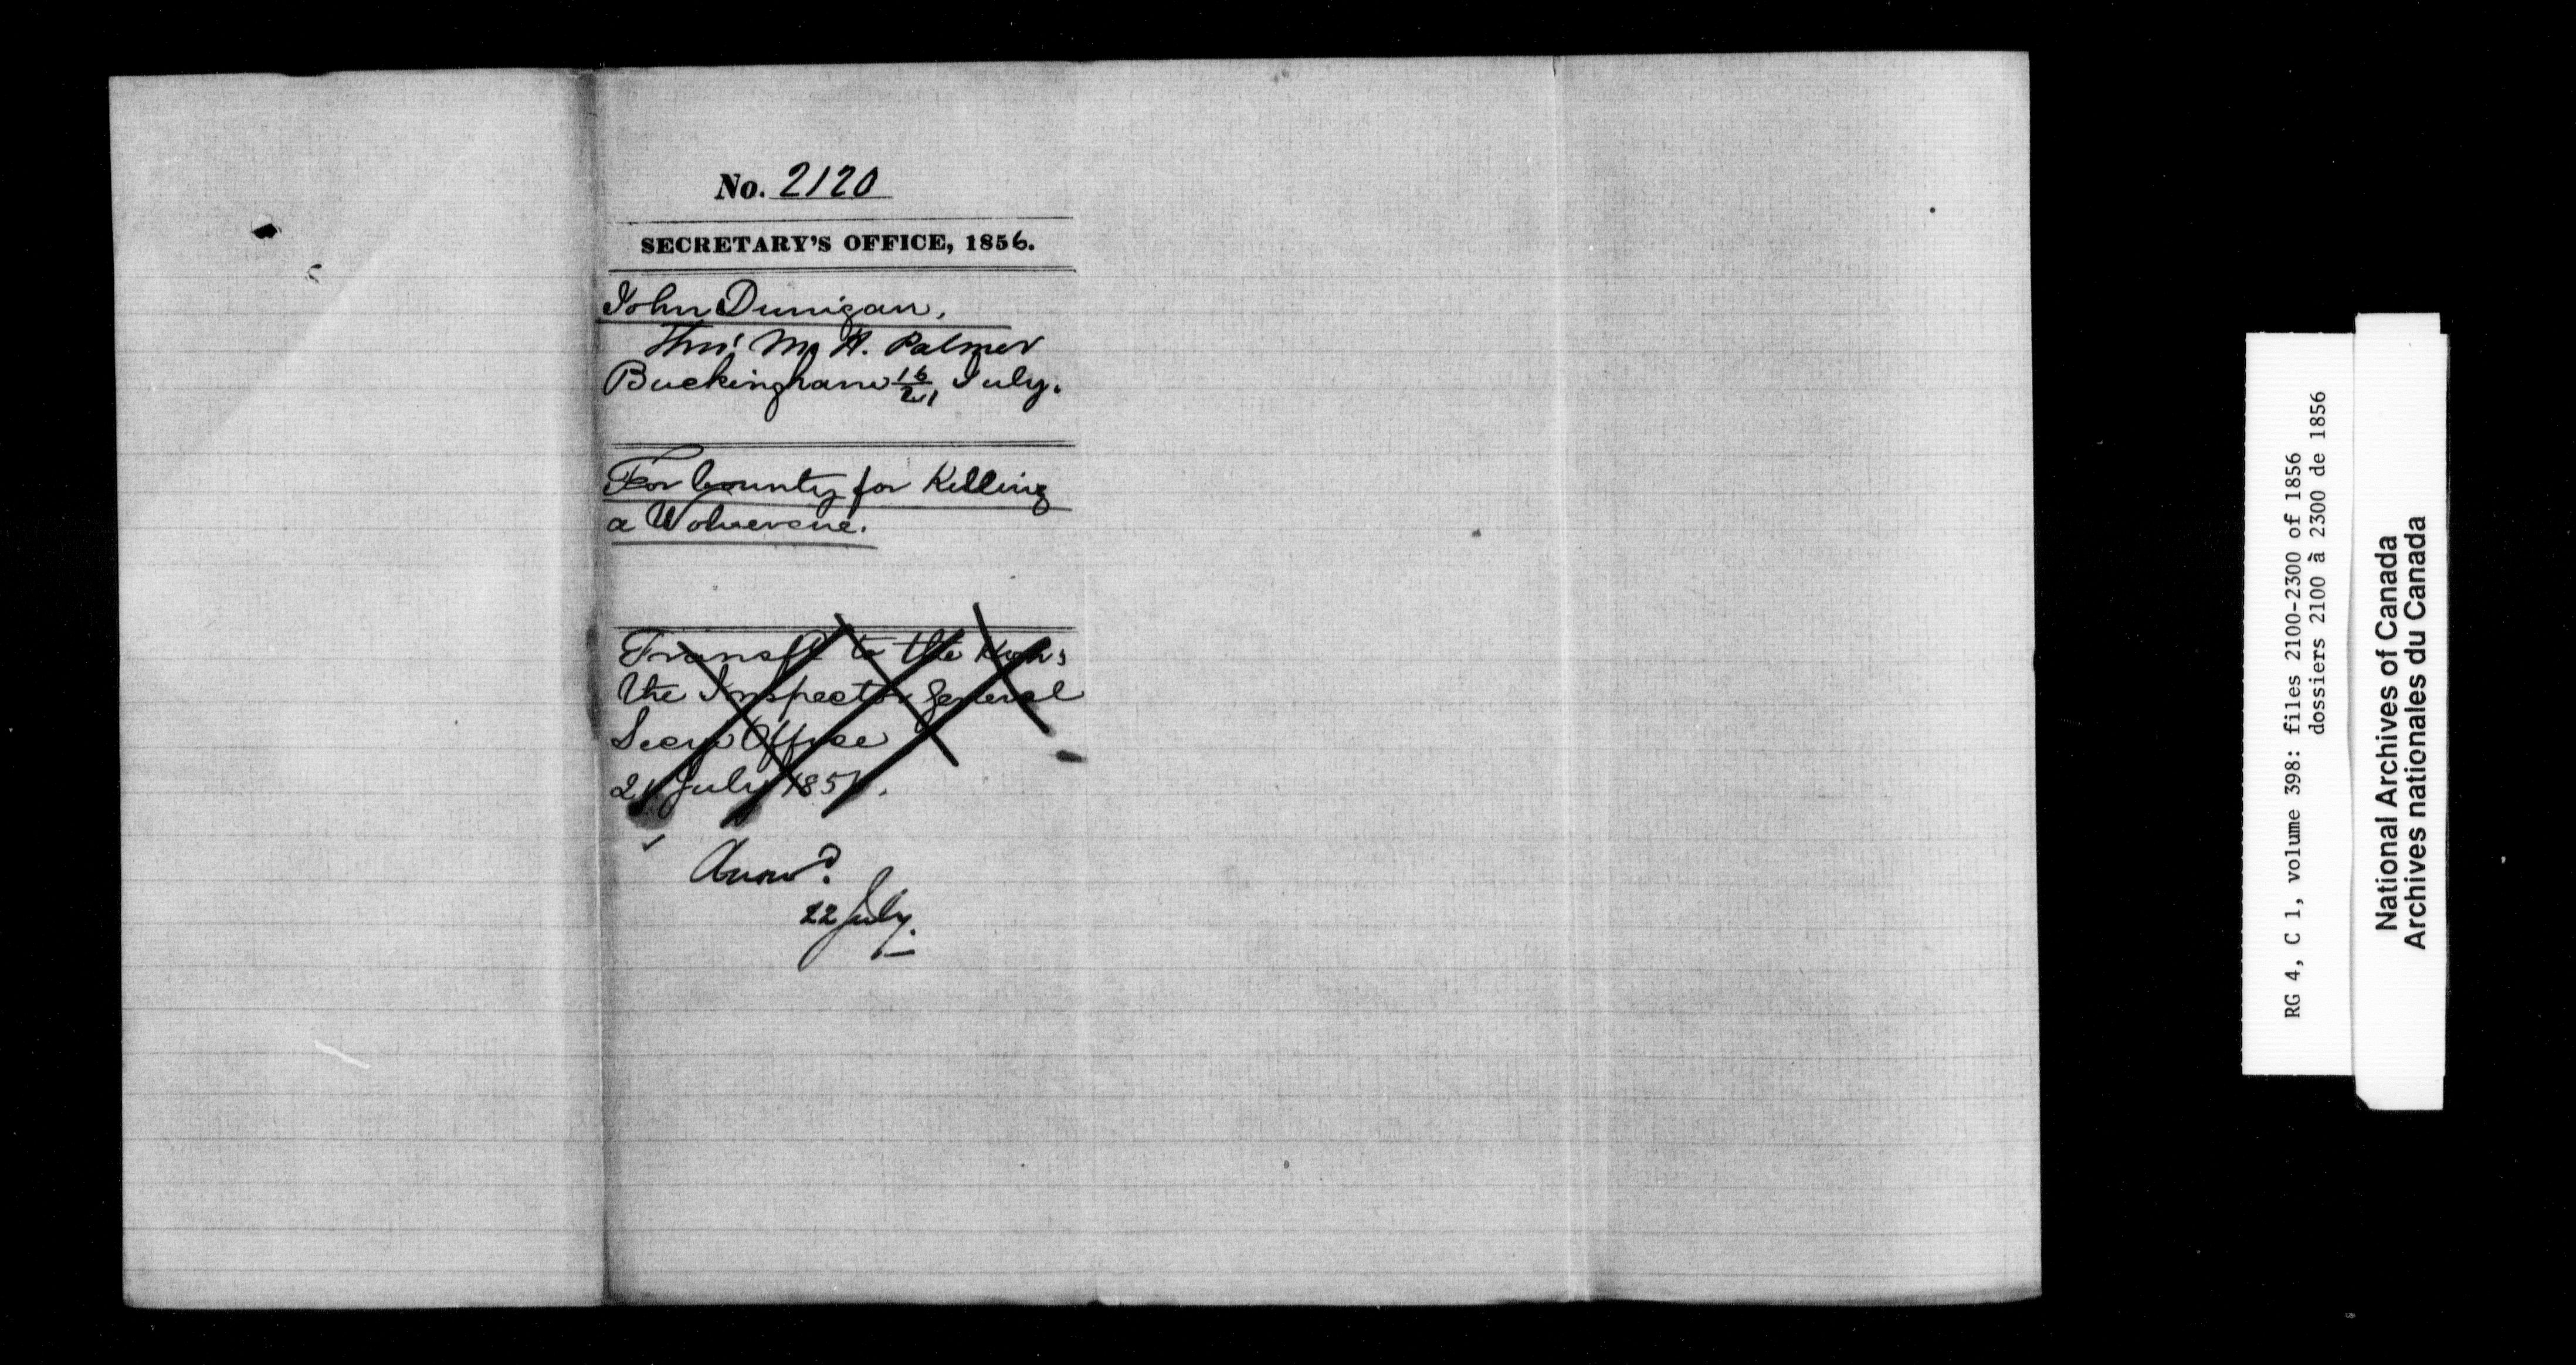 No. 2120
SECRETARY'S OFFICE, 1856.
John Dunigan,
Thro' Mr A. Palmer
Buckingham 16/21 July.
For bounty for Killing
a Wolverene.
Transfd to the Honb
the Inspector General
Secys Office
21 July 1856.
Answd.
22 July.
RG 4, C 1, volume 398: files 2100-2300 of 1856
dossiers 2100 à 2300 de 1856
National Archives of Canada
Archives nationales du Canada